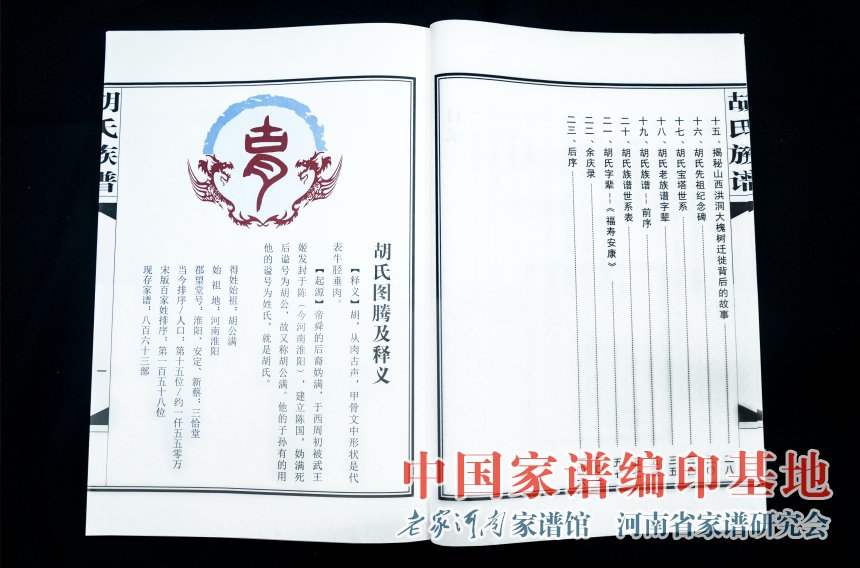 胡氏族谱
十五、揭秘山西洪洞大槐树迁徙背后的故事
十六、胡氏先祖纪念碑
十七、胡氏宝塔世系
十八、胡氏老族谱字辈
十九、胡氏族谱—前序
二十、胡氏族谱世系表
二一、胡氏字辈—《福寿安康》
二二、余庆录
二三、后序
胡氏图腾及释义
【释义】胡，从肉古声，甲骨文中形状是代
表牛胫垂肉。
【起源】帝舜的后裔妫满，于西周初被武王
姬发封于陈（今河南淮阳），建立陈国，妫满死
后谥号为胡公，故又称胡公满。他的子孙有的用
他的谥号为姓氏，就是胡氏。
得姓始祖：胡公满
始祖地：河南淮阳
郡望堂号：淮阳、安定、新蔡：三恪堂
当今排序/人口：第十五位/约一仟五五零万
宋版百家姓排序：第一百五十八位
现存家谱：八百六十三部
一
胡氏族谱
中国家谱编印基地
老家河南家谱馆 河南省家谱研究会